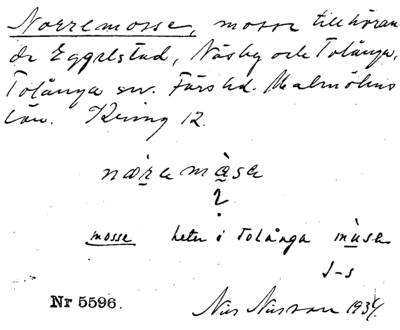 Norremosse, mosse tillhöran
de Eggelstad, Näsby och Tolånga,
Tolånga sn. Färs hd. Malmöhus
län. Kring 12.
nœ́ra mɑ̀sa
?
mosse heter i Tolånga mùsa
J-s
Nr 5596. Nils Nilsson 1934.